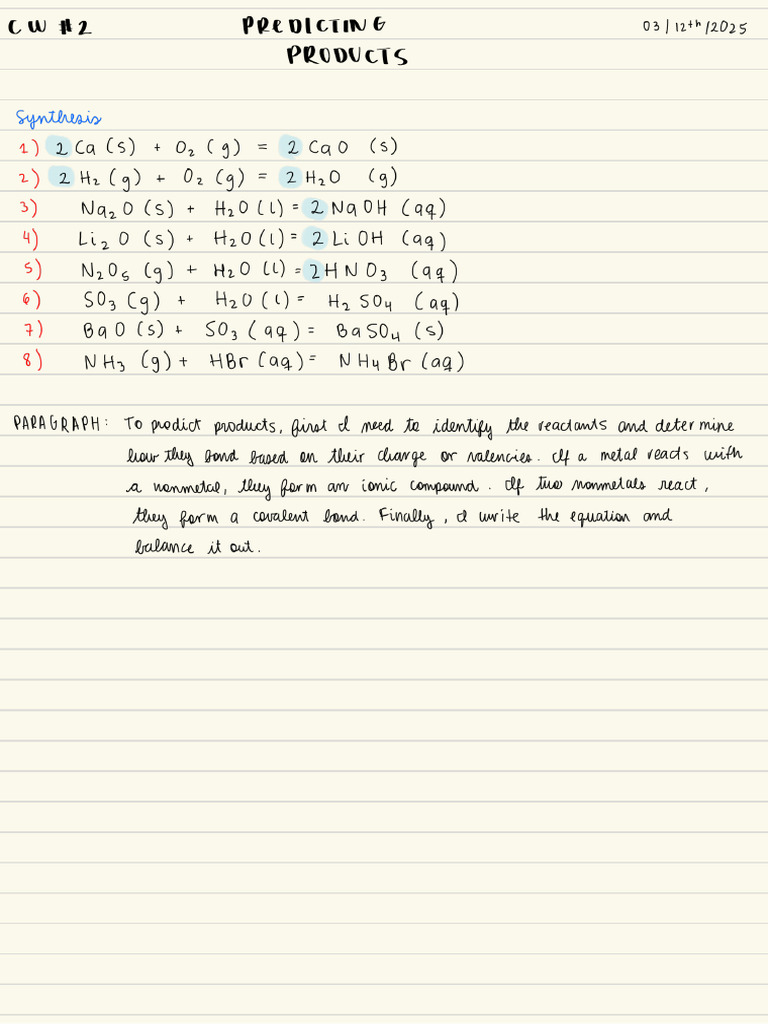 CW #2 PREDICTING 03/12th/2025
PRODUCTS
Synthesis
1) 2 Ca (s) + O₂ (g) = 2 CaO (s)
2) 2 H₂ (g) + O₂ (g) = 2 H₂O (g)
3) Na₂O (s) + H₂O (l) = 2 NaOH (aq)
4) Li₂O (s) + H₂O (l) = 2 LiOH (aq)
5) N₂O₅ (g) + H₂O (l) = 2 HNO₃ (aq)
6) SO₃ (g) + H₂O (l) = H₂SO₄ (aq)
7) BaO (s) + SO₃ (aq) = BaSO₄ (s)
8) NH₃ (g) + HBr (aq) = NH₄Br (aq)
PARAGRAPH: To predict products, first I need to identify the reactants and determine
how they bond based on their charge or valencies. If a metal reacts with
a nonmetal, they form an ionic compound. If two nonmetals react,
they form a covalent bond. Finally, I write the equation and
balance it out.